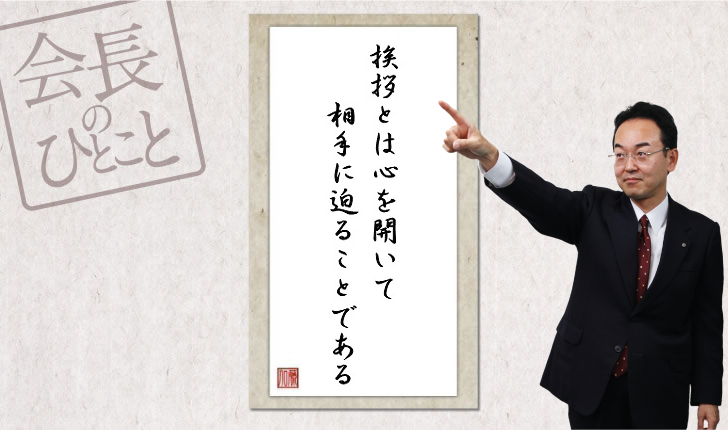 会長
の
ひとこと
挨拶とは心を開いて
相手に迫ることである